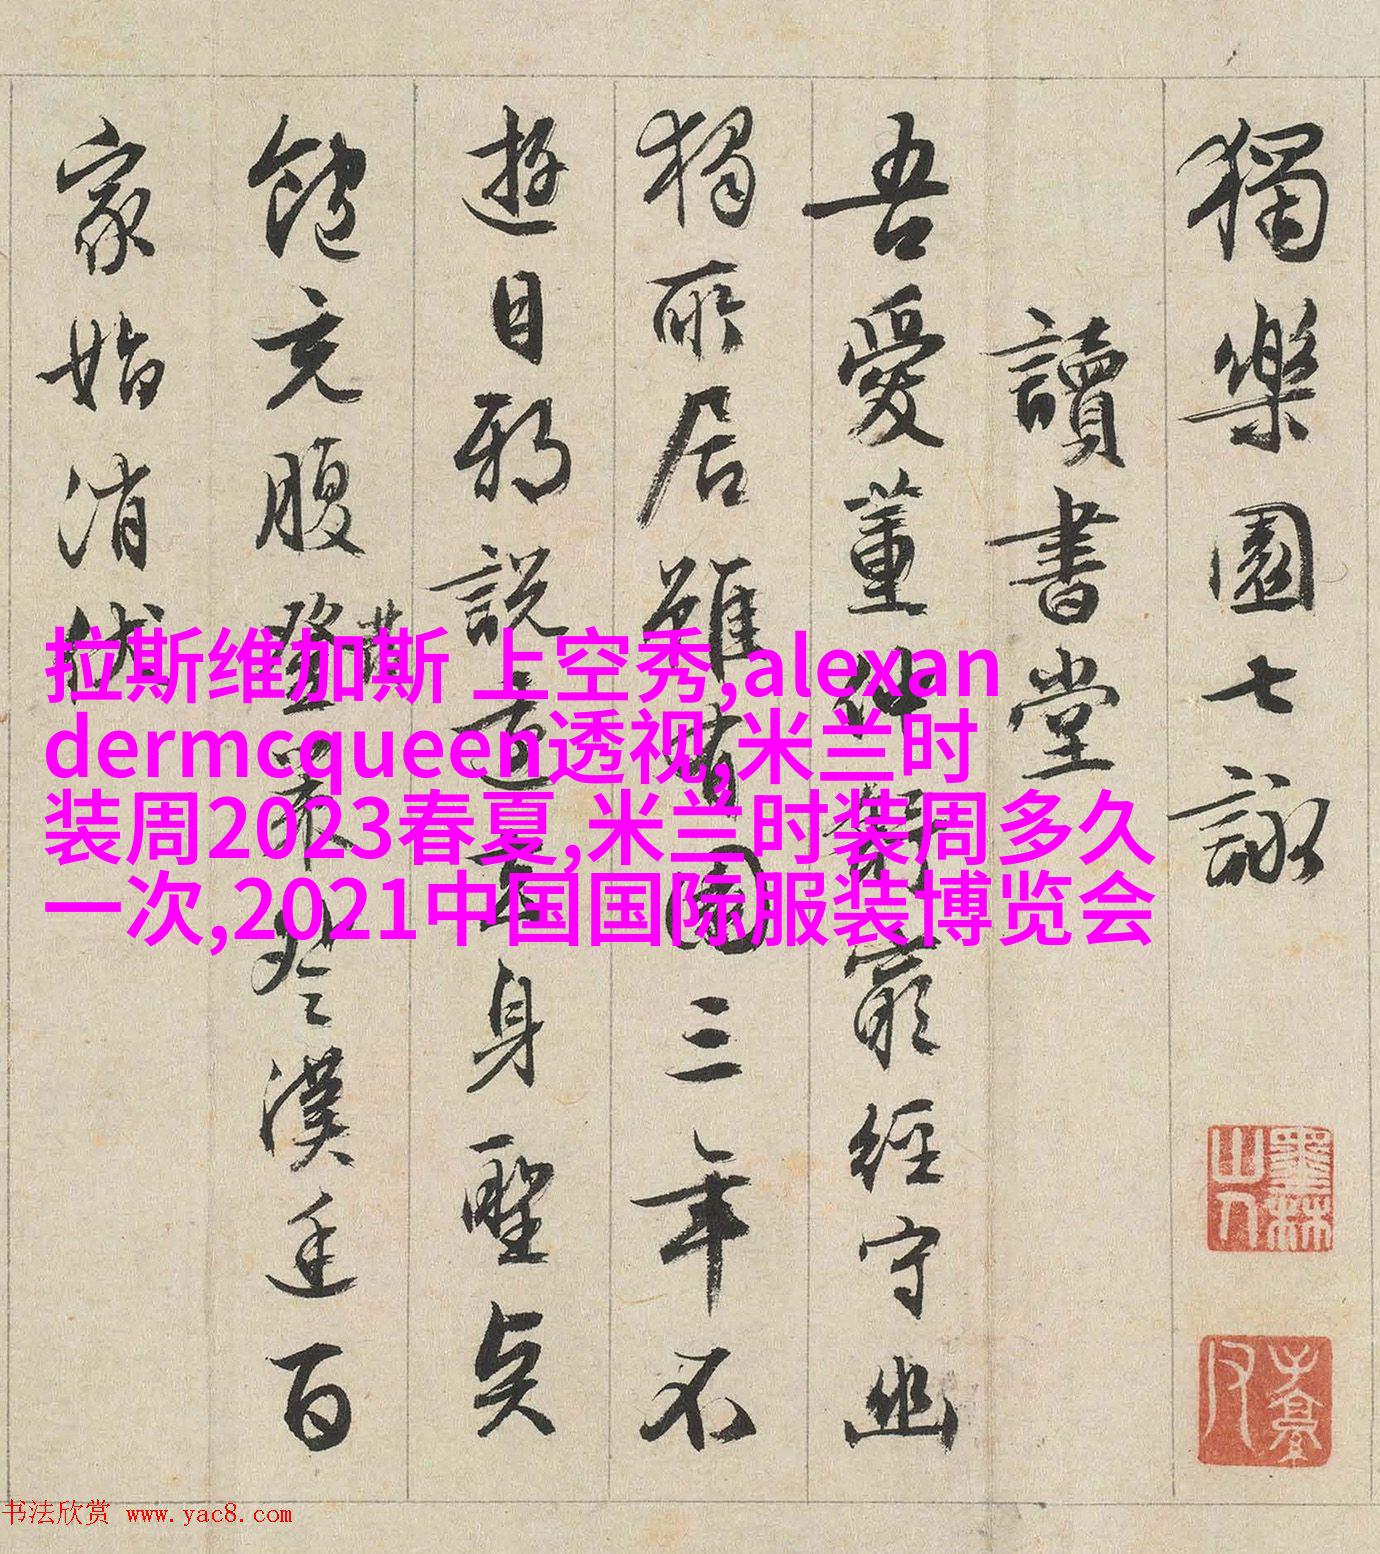 獨樂園七詠
讀書堂
吾愛董仲舒窮經守幽
獨所居雖有園三年不
遊目邪説遠去聖
飽充腹登策登漢廷百
家始消伏
墨林山人
拉斯维加斯 上空秀,alexan
dermcqueen透视,米兰时
装周2023春夏,米兰时装周多久
一次,2021中国国际服装博览会
书法欣赏 www.yac8.com